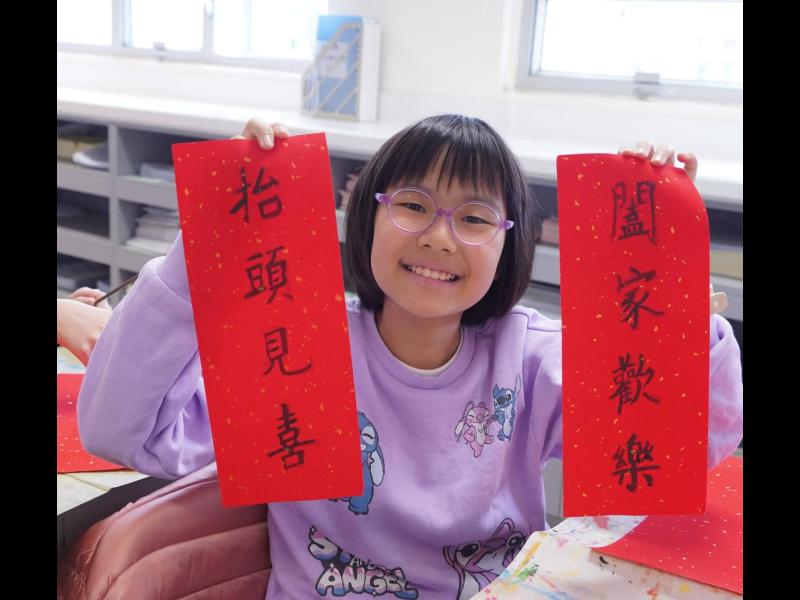 抬頭見喜
闔家歡樂
ANGEL